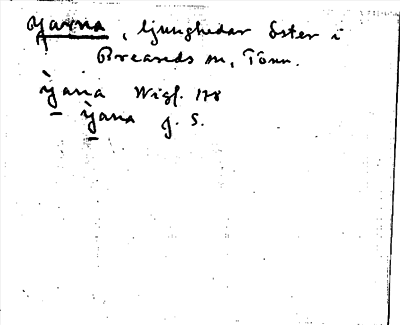 Yarna, ljunghedar öster i
Breareds sn, Tönn.
Yana Wigf. 178
Yana J. S.